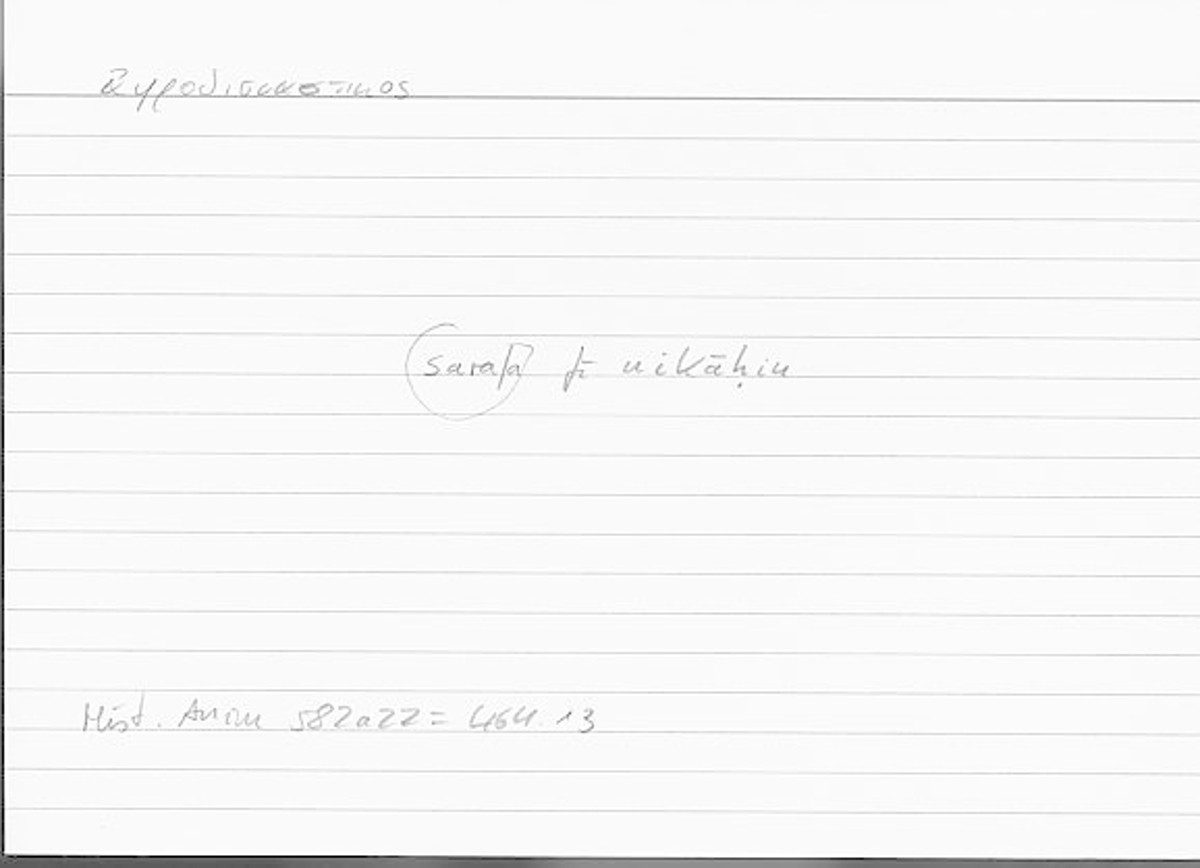 αφροδισιαστικος
sarafa fī nikāḥin
Hist. Anim 582a22 = 464.13